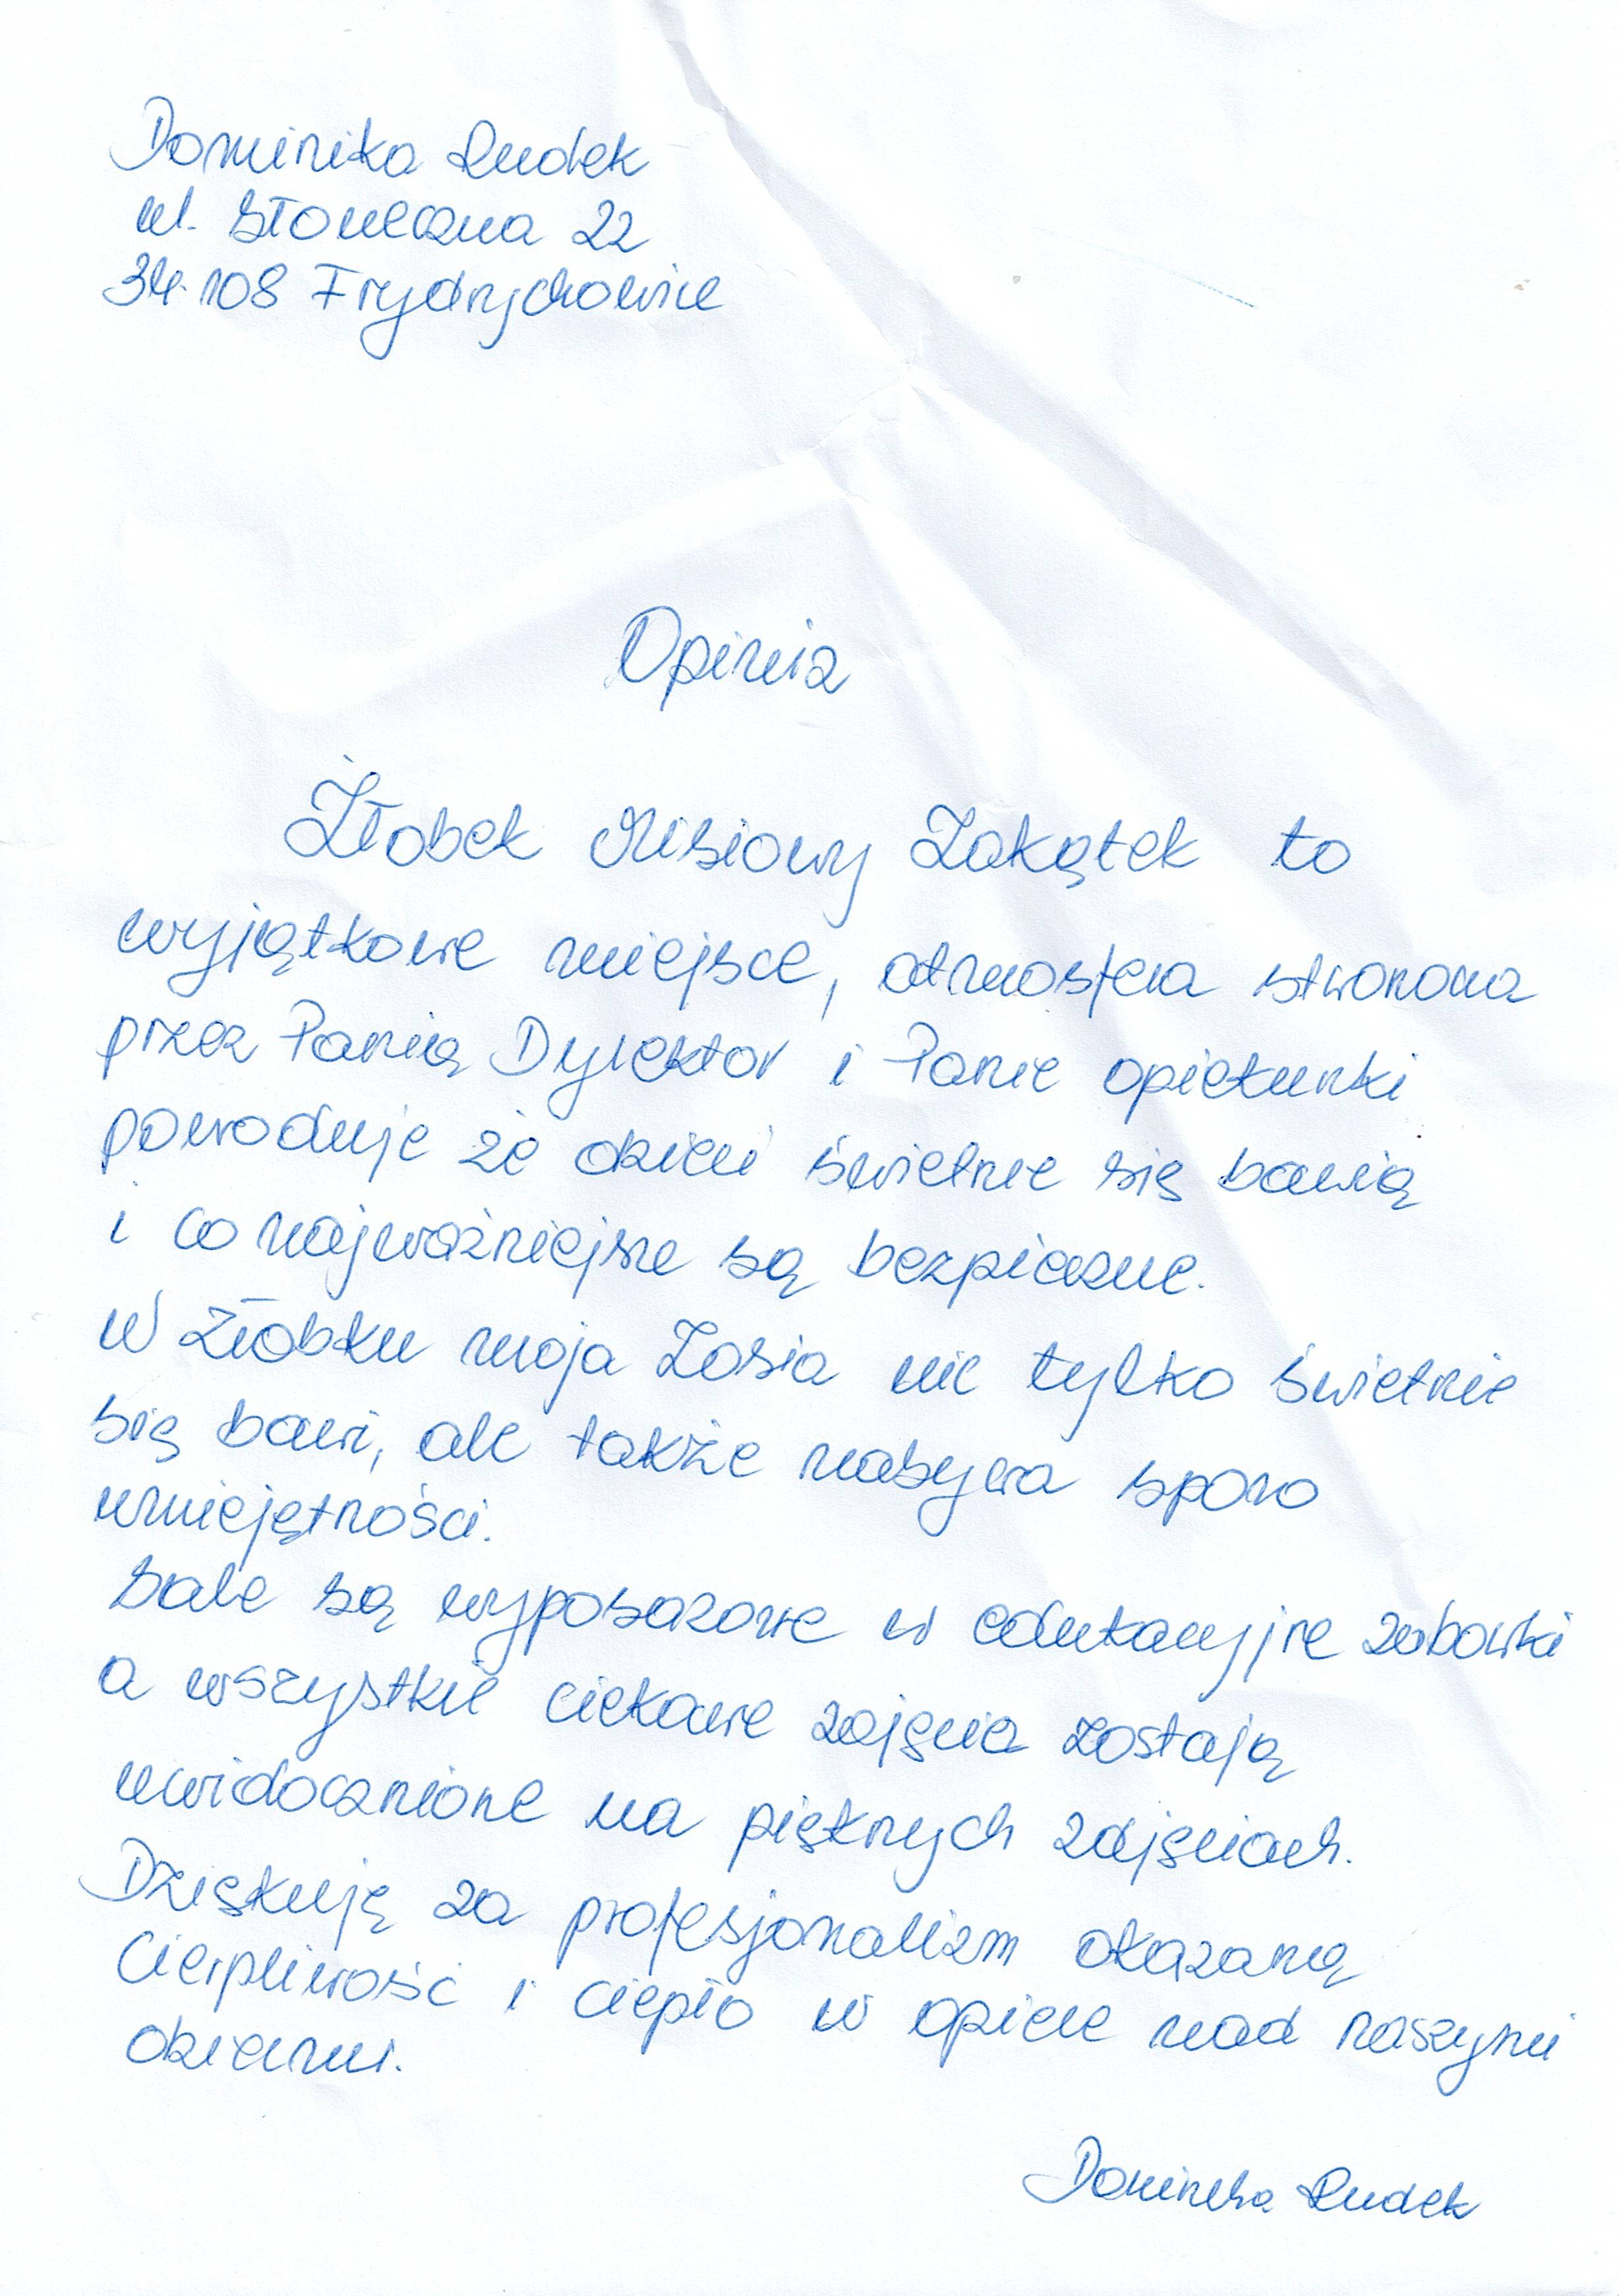 Dominika Dudek
ul. Słoneczna 22
34-108 Frydrychowice
Opinia
Żłobek Misiowy Zakątek to
wyjątkowe miejsce, atmosfera stworzona
przez Panią Dyrektor i Panie opiekunki
powoduje że dzieci świetnie się bawią
i co najważniejsze są bezpieczne.
W żłobku moja Zosia nie tylko świetnie
się bawi, ale także nabywa sporo
umiejętności.
Sale są wyposażone w edukacyjne zabawki
a wszystkie ciekawe zajęcia zostają
uwidocznione na pięknych zdjęciach.
Dziękuję za profesjonalizm okazaną
cierpliwość i ciepło w opiece nad naszymi
dziećmi.
Dominika Dudek